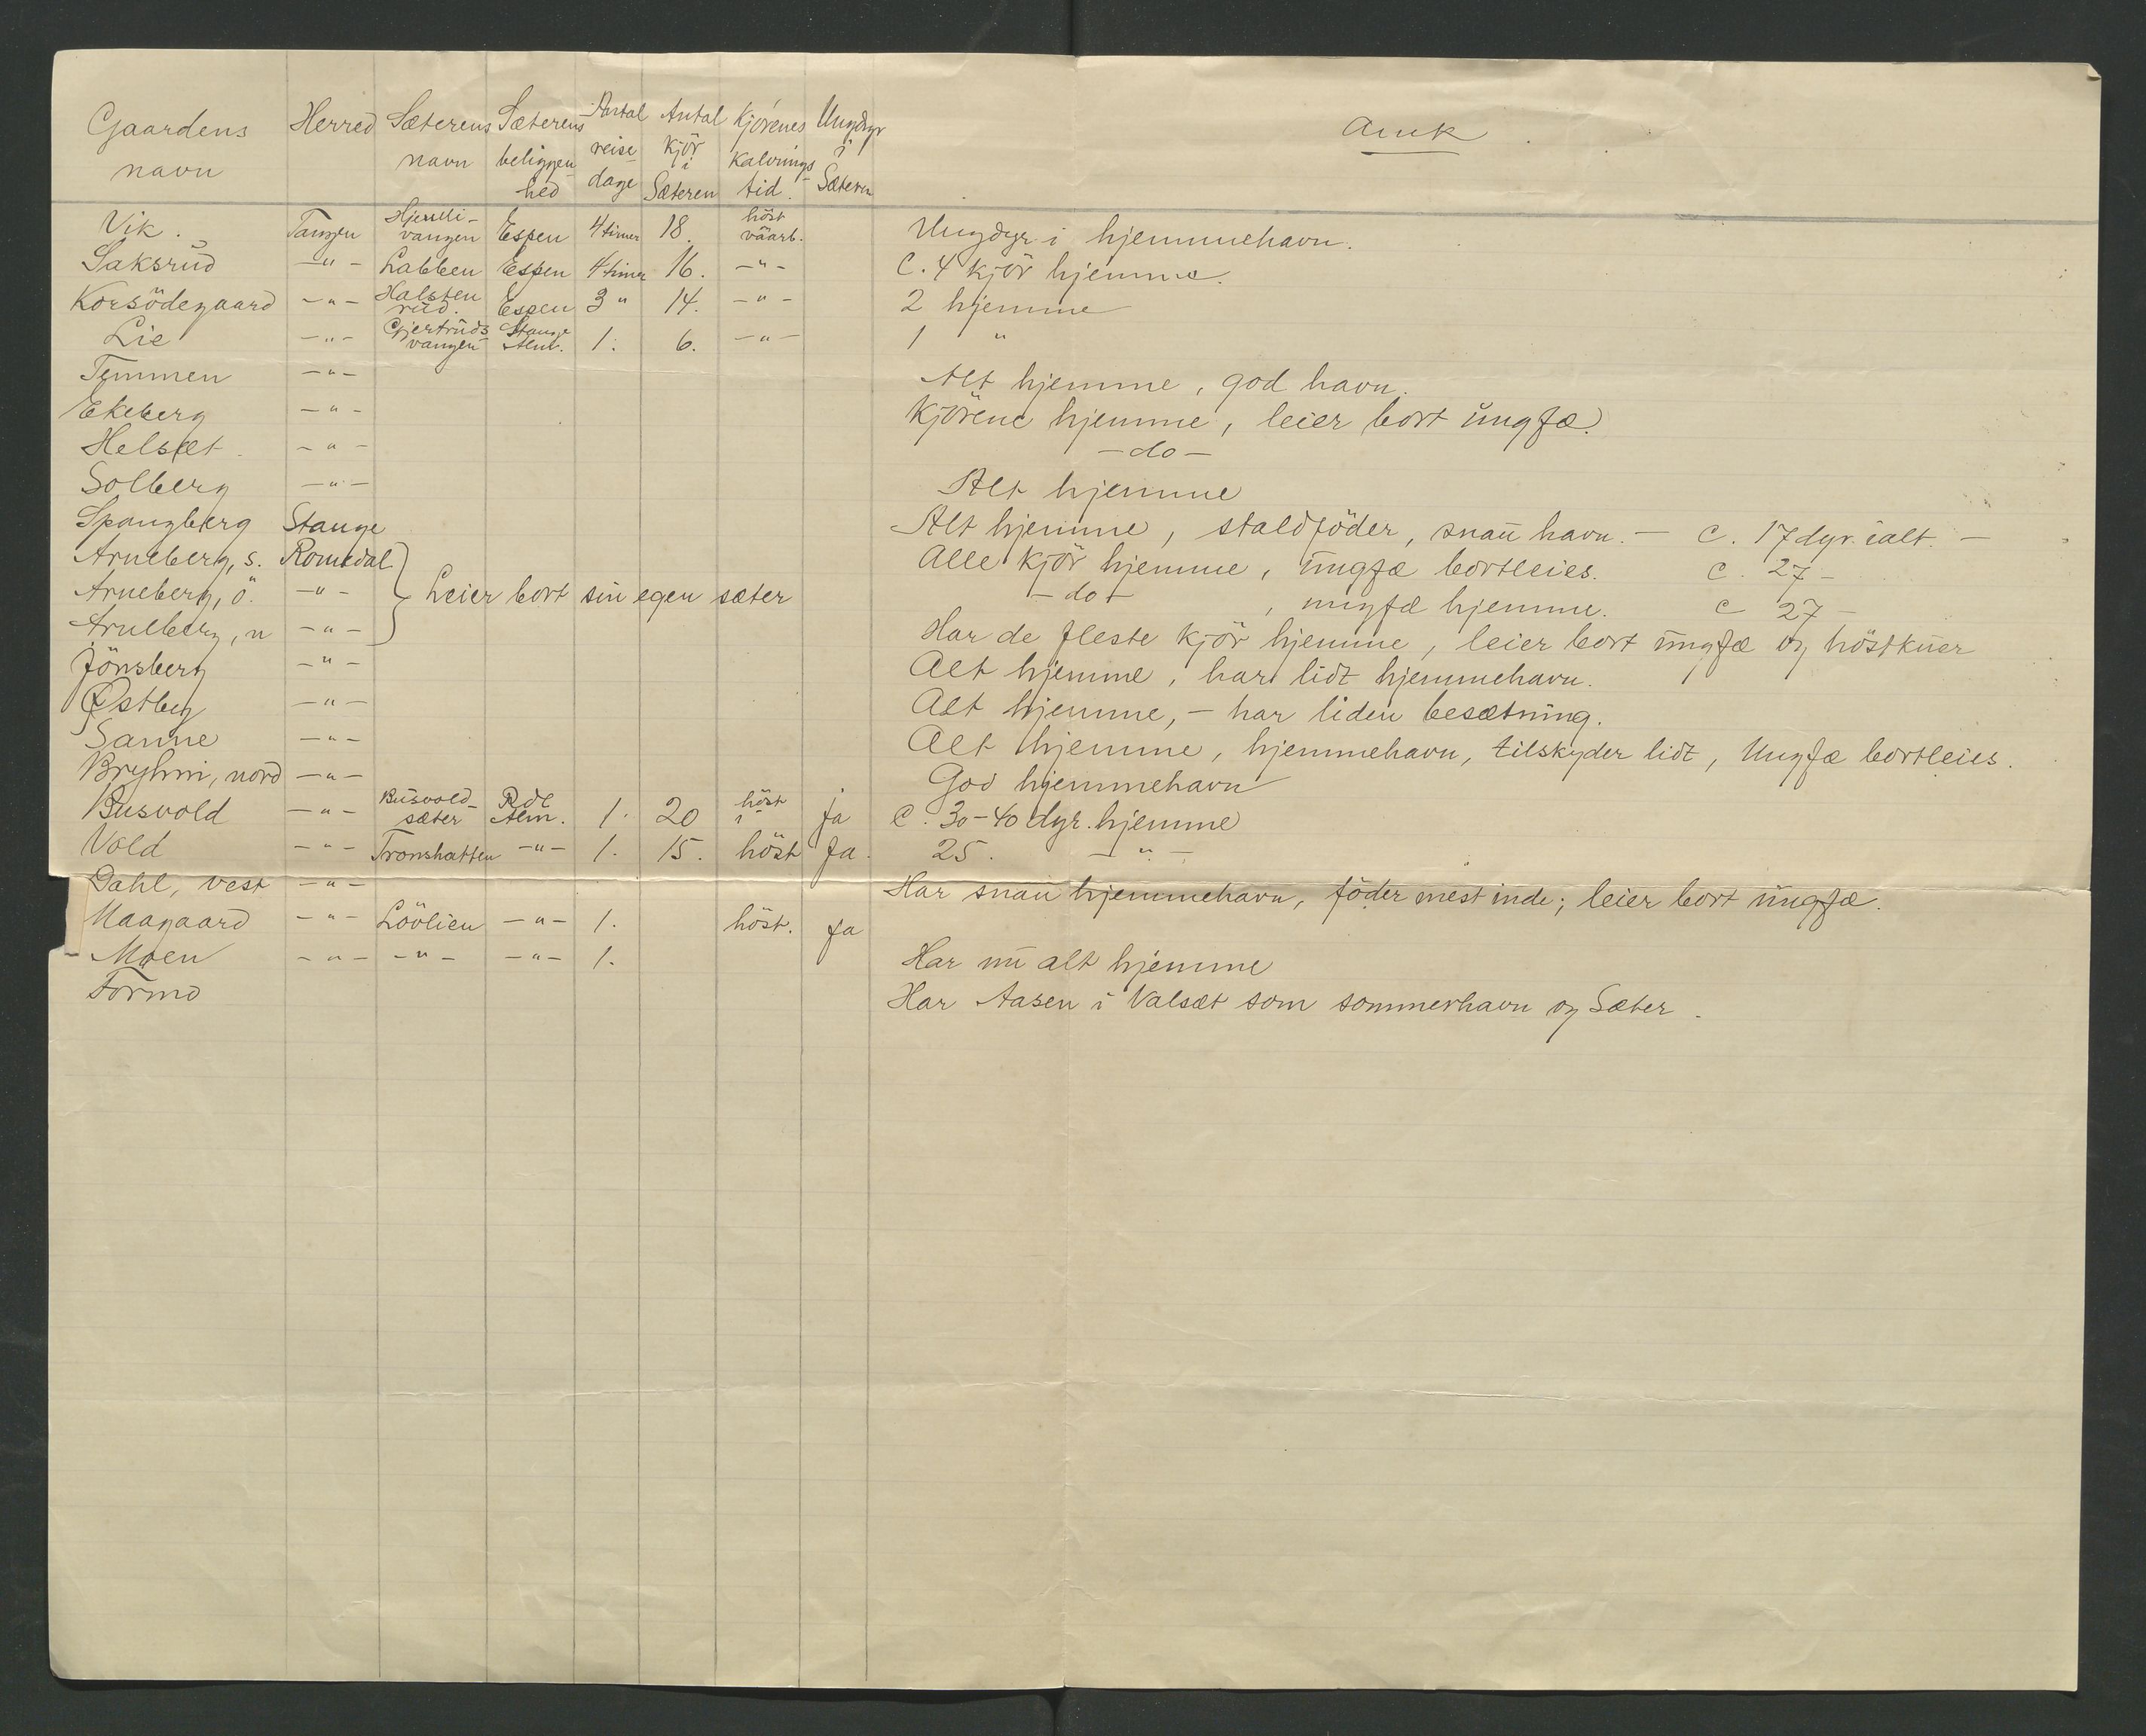 Gaardens navn | Herred | Sæterens navn | Sæterens beliggenhed | Antal reisedage | Antal kjör i Sæteren | Kjörenes kalvningstid | Ungdyr i Sæteren | Amk
Vik. | Tangen | vangen | Espen | 4 timer | 18. | höst vaarb. | | Ungdyr i hjemmehavn.
Saksrud | -"- | Labben | Espen | 4 timer | 16. | -"- | | C. 4 kjör hjemme.
Korsödegaard | -"- | Halstenrud. | Espen | 3 " | 14. | -"- | | 2 hjemme
Lie | -"- | Gjertrudsvangen | Stange Alm. | 1. | 6. | -"- | | 1 "
Temmen | -"- | | | | | | | Alt hjemme, god havn.
Ekeberg | -"- | | | | | | | Kjörene hjemme, leier bort ungfæ.
Helsæt. | -"- | | | | | | | -do-
Solberg | -"- | | | | | | | Alt hjemme
Spangberg | Stange | | | | | | | Alt hjemme, staldföder, snau havn. - C. 17 dyr ialt. -
Arneberg, s. | Romedal } | | | | | | | Alle kjör hjemme, ungfæ bortleies. C. 27 -
Arneberg, ö. | -"- } Leier bort sin egen sæter | | | | | | | -do- , ungfæ hjemme. C 27 -
Arneberg, n | -"- } | | | | | | | Har de fleste kjör hjemme, leier bort ungfæ og höstkuer
Jönsberg | -"- | | | | | | | Alt hjemme, har lidt hjemmehavn.
Østby | -"- | | | | | | | Alt hjemme, - har liden besætning.
Sanne | -"- | | | | | | | Alt hjemme, hjemmehavn, tilskyder lidt, Ungfæ bortleies.
Bryhni, nord | -"- | | | | | | | God hjemmehavn
Busvold | -"- | Busvold-sæter | Rdl Alm. | 1. | 20 | höst | ja | C. 30-40 dyr. hjemme
Vold | -"- | Tronshatten | -"- | 1. | 15. | höst | Ja. | 25. -"-
Dahl, vest | -"- | | | | | | | Har snau hjemmehavn, föder mest inde; leier bort ungfæ.
Maagaard | -"- | Lövlien | -"- | 1. | | höst. | Ja
Moen | -"- | -"- | -"- | 1. | | | | Har nu alt hjemme
Formo | | | | | | | | Har Aasen i Valsæt som sommerhavn og Sæter.